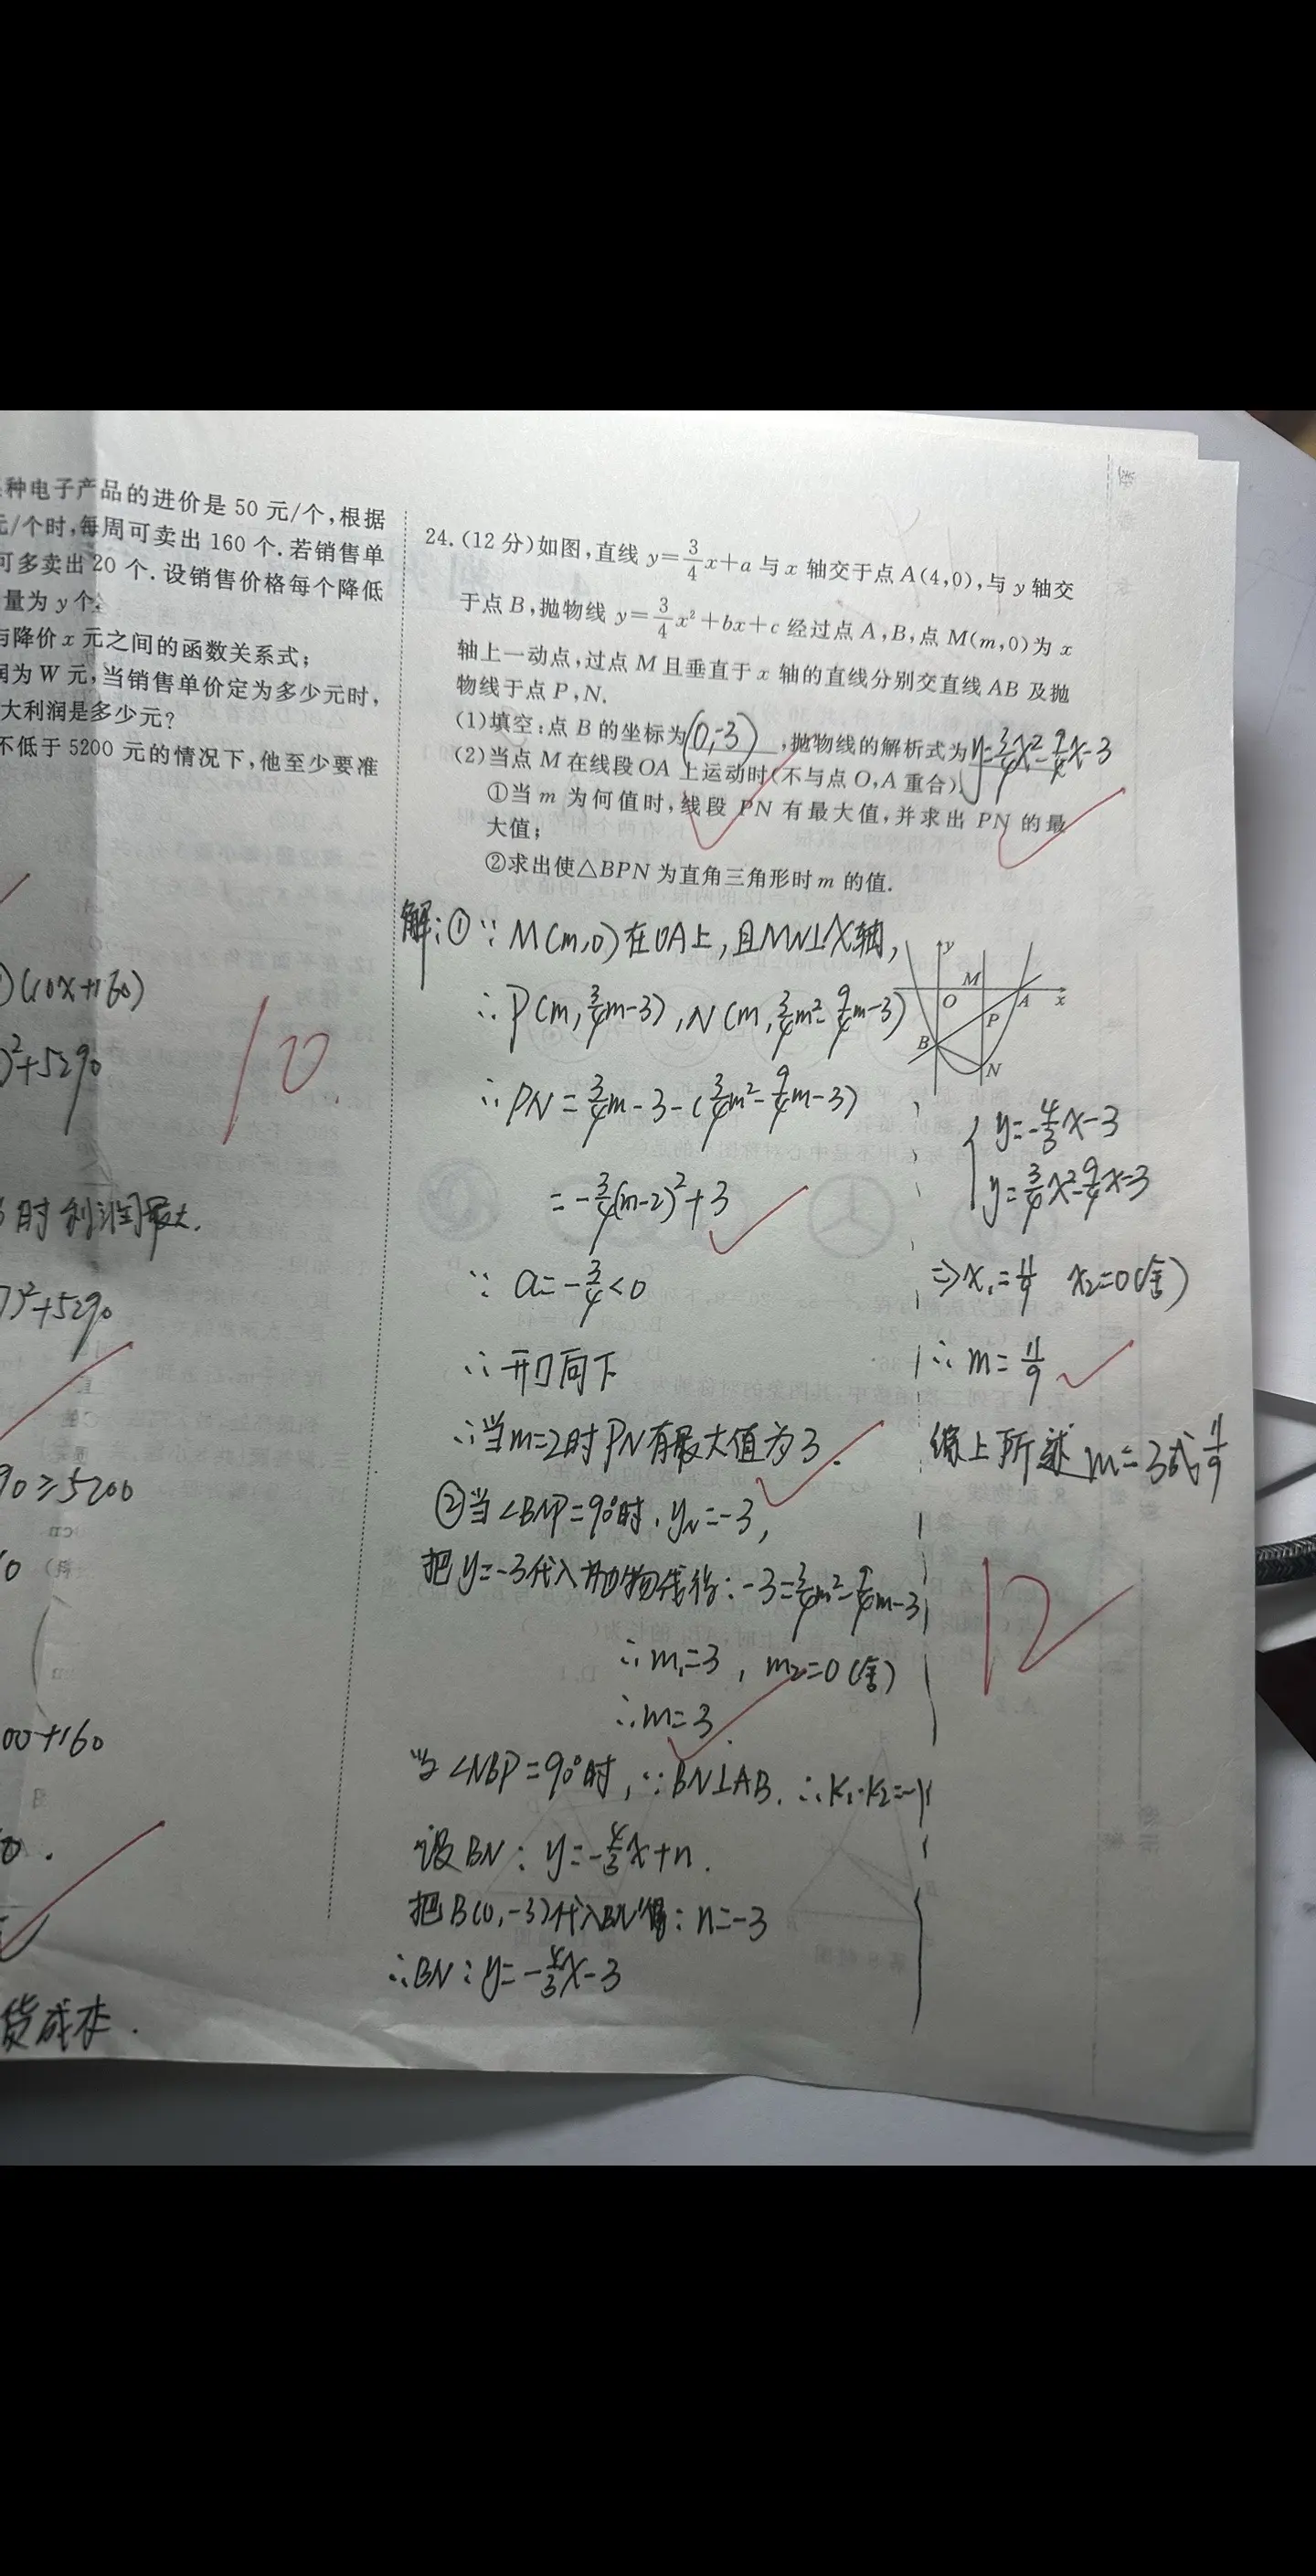 种电子产品的进价是 50 元/个,根据
元/个时,每周可卖出 160 个.若销售单
可多卖出 20 个.设销售价格每个降低
量为 y 个.
与降价 x 元之间的函数关系式;
润为 W 元,当销售单价定为多少元时,
大利润是多少元?
不低于 5200 元的情况下,他至少要准
)(10x+160)
)²+5290
10
时利润最大.
)²+5290
90≥5200
00+160
0.
货成本.
24.(12 分)如图,直线 y=3/4x+a 与 x 轴交于点 A(4,0),与 y 轴交
于点 B,抛物线 y=3/4x²+bx+c 经过点 A,B,点 M(m,0)为 x
轴上一动点,过点 M 且垂直于 x 轴的直线分别交直线 AB 及抛
物线于点 P,N.
(1)填空:点 B 的坐标为(0,-3),抛物线的解析式为y=3/4x²-9/4x-3
(2)当点 M 在线段 OA 上运动时(不与点 O,A 重合),
①当 m 为何值时,线段 PN 有最大值,并求出 PN 的最
大值;
②求出使△BPN 为直角三角形时 m 的值.
解:①∵M(m,0)在OA上,且MN⊥X轴,
∴P(m,3/4m-3),N(m,3/4m²-9/4m-3)
∴PN=3/4m-3-(3/4m²-9/4m-3)
=-3/4(m-2)²+3
∵a=-3/4<0
∴开口向下
∴当m=2时PN有最大值为3.
②当∠BNP=90°时,yN=-3,
把y=-3代入抛物线得:-3=3/4m²-9/4m-3
∴m₁=3,m₂=0(舍)
∴m=3.
当∠NBP=90°时,∵BN⊥AB,∴k₁·k₂=-1
设BN:y=-4/3x+n.
把B(0,-3)代入BN得:n=-3
∴BN:y=-4/3x-3
y
M
O
A
x
P
B
N
y=-4/3x-3
y=3/4x²-9/4x-3
⇒x₁=11/9 x₂=0(舍)
∴m=11/9
综上所述m=3或11/9
12